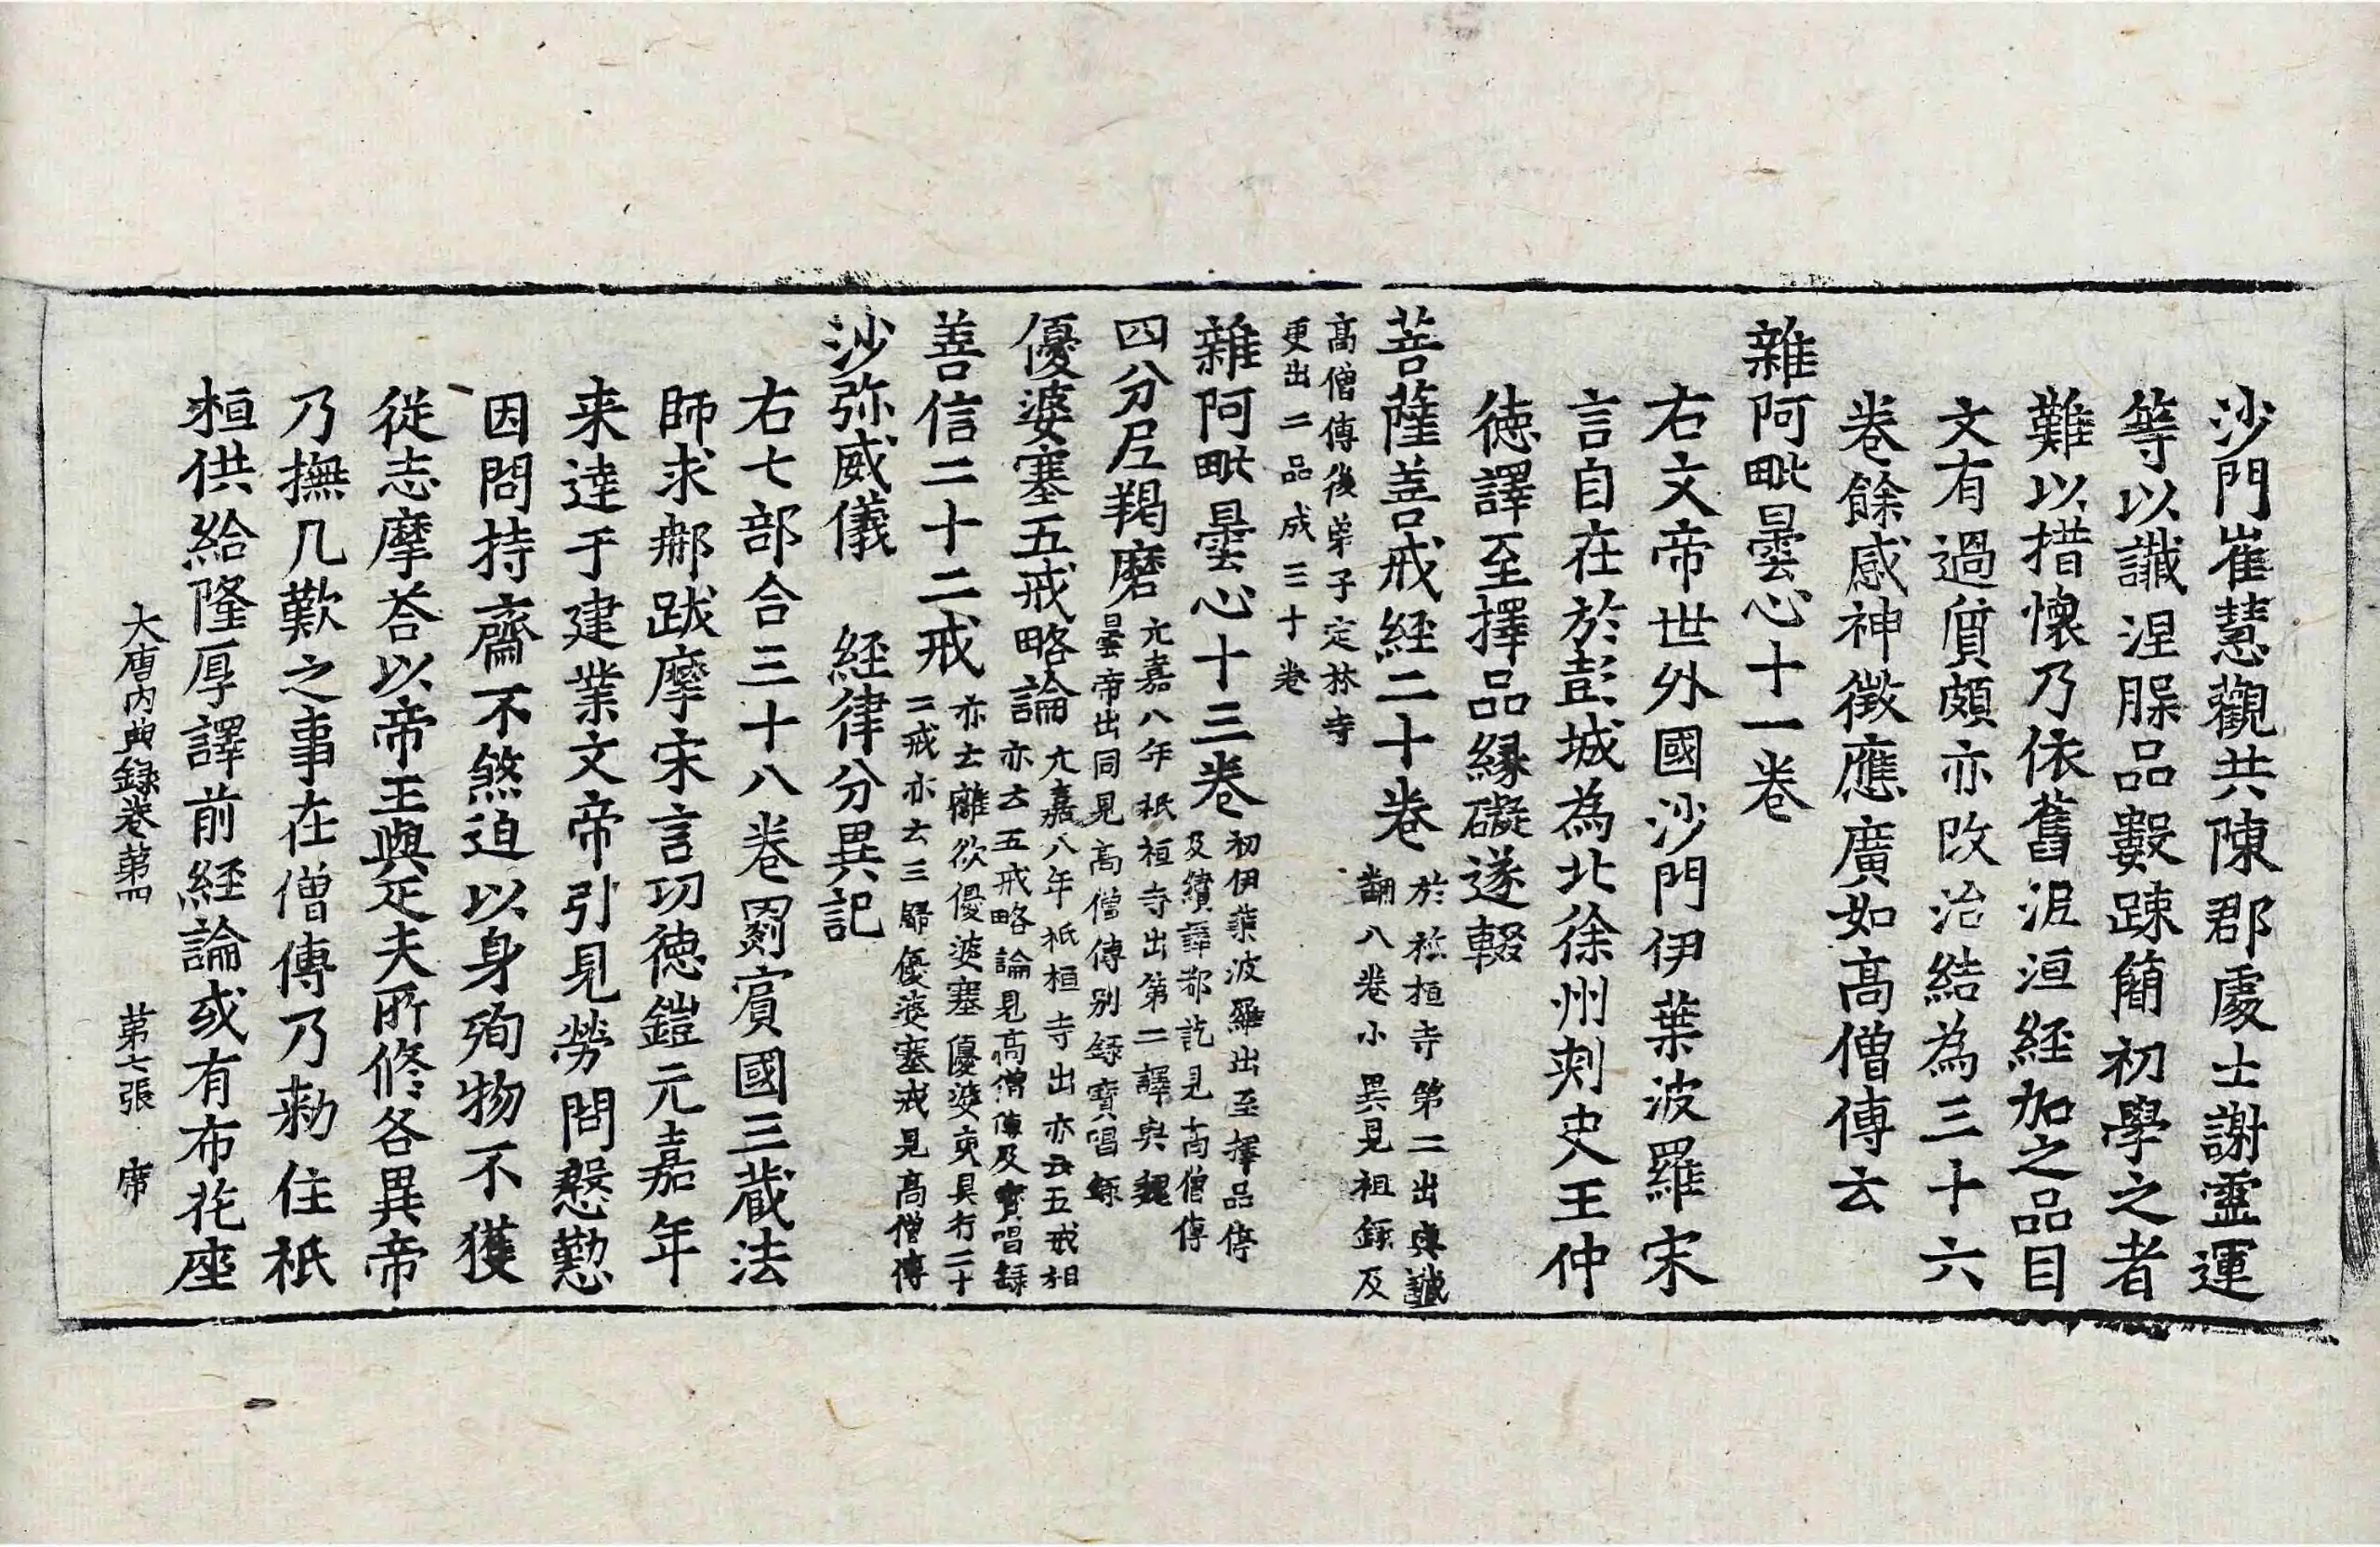 沙門崔慧觀共陳郡處士謝靈運
等以讖涅脵品數踈簡初學之者
難以措懷乃依舊泥洹經加之品目
文有過質頗亦改治結為三十六
卷餘感神徵應廣如高僧傳云
雜阿毗曇心十一卷
右文帝世外國沙門伊葉波羅宋
言自在於彭城為北徐州刾史王仲
德譯至擇品緣礙遂輟
菩薩善戒經二十卷
於祇桓寺第二出與讖
翻八卷小異見祖錄及
高僧傳後弟子定林寺
更出二品成三十卷
雜阿毗曇心十三卷
初伊葉波羅出至擇品停
及續譯都訖見高僧傳
四分尼羯磨
元嘉八年祇桓寺出第二譯與魏
曇帝出同見高僧傳別錄寶唱錄
優婆塞五戒略論
元嘉八年祇桓寺出亦云五戒相
亦云五戒略論見高僧傳及寶唱錄
善信二十二戒
亦云離欲優婆塞優婆夷具行二十
二戒亦云三歸優婆塞戒見高僧傳
沙弥威儀 經律分異記
右七部合三十八卷罽賓國三藏法
師求鄁跋摩宋言功德鎧元嘉年
来達于建業文帝引見勞問慇懃
因問持齋不煞迫以身殉物不獲
從志摩荅以帝王與疋夫所修各異帝
乃撫几歎之事在僧傳乃勑住祇
桓供給隆厚譯前經論或有布花座
大唐內典錄卷第四 第七張 席